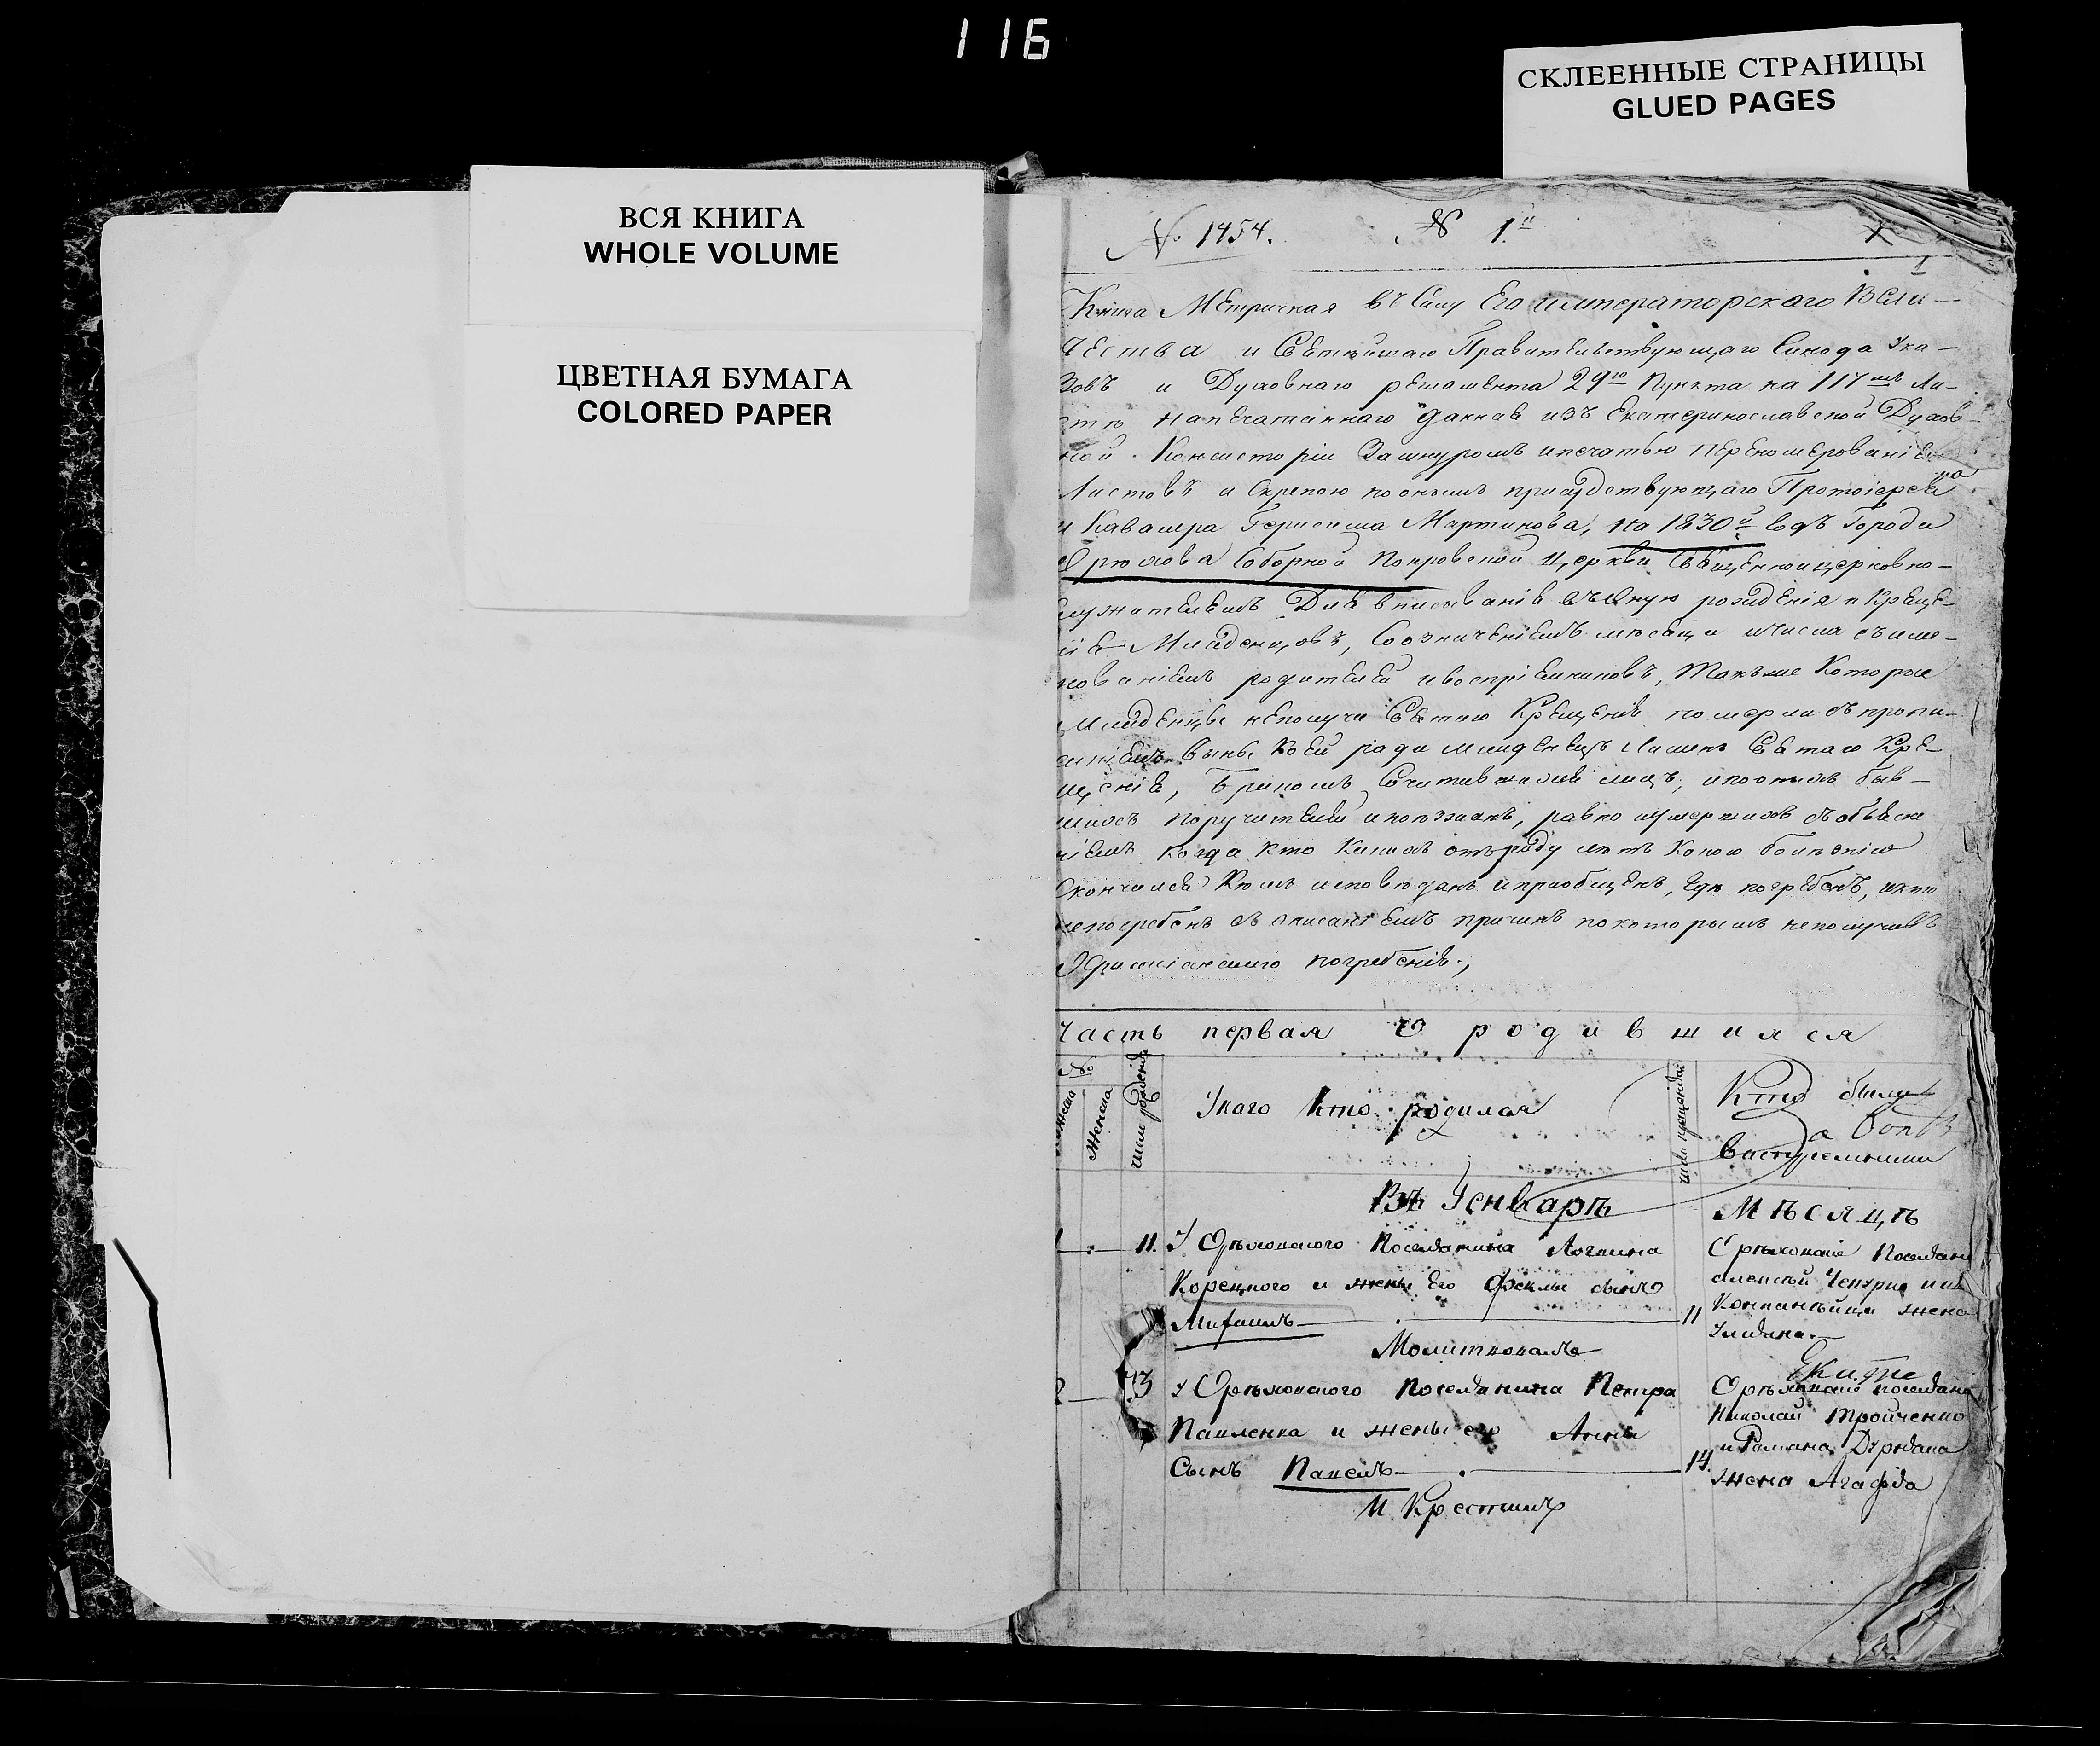 116
СКЛЕЕННЫЕ СТРАНИЦЫ
GLUED PAGES
ВСЯ КНИГА
WHOLE VOLUME
ЦВЕТНАЯ БУМАГА
COLORED PAPER
№ 1454. № 1.й
1
Книга Метрическая въ Силу Его императорскаго Вели-
чества и Святейшаго Правительствующаго Синода Ука-
зовъ и Духовнаго регламента 29го Пункта на 117мъ Ли-
сте напечатаннаго данная изъ Екатеринославской Духов-
ной Консисторіи Зашнуромъ ипечатью
Листовъ и Скрепою по онымъ присудствующаго Протоіерея
и Кавалера Мартинова, на 1830й Годъ Города
Орехова Соборной Покровской Церкви Священноицерковно-
служителемъ Для вписыванія рождения и Креще-
нія Младенцовъ, Соозниченіемъ месяца ичисла съиме-
нованіемъ родителей ивоспріемниковъ, Такъже Которые
Младенцы неполуча Святаго Крещенія померли съпропи-
саніемъ вины Коей ради младенецъ Лишенъ Святаго Кре-
щенія,
шихъ поручителей ипоезжанъ, равно иумершихъ собъясне
ніемъ когда кто Кихъ отъроду летъ Коею болезнію
скончался Кемъ исповеданъ ипріобщенъ, где погребенъ, икто
непогребенъ съ описаніемъ причинъ покоторымъ неполучивъ
Христіанскаго погребенія.,
Часть первая О родившихся
№
Женска
Число рожденія
Укаго кто родился
Кто были
Воспріемники
Въ Генваре Месяце
11. У Ореховскаго Поселянина Логвина
Корецкого и жены Его Феклы сынъ
Михаилъ 11
Молитвовалъ
Ореховскіе Поселяне
жена
Уляна.
13 У Ореховского Поселянина Петра
Павленка и жены его Анны
Сынъ Павелъ 14.
И Крестилъ
Ореховскіе поселяне
Николай Тройченко
и Романа
жена Агафія